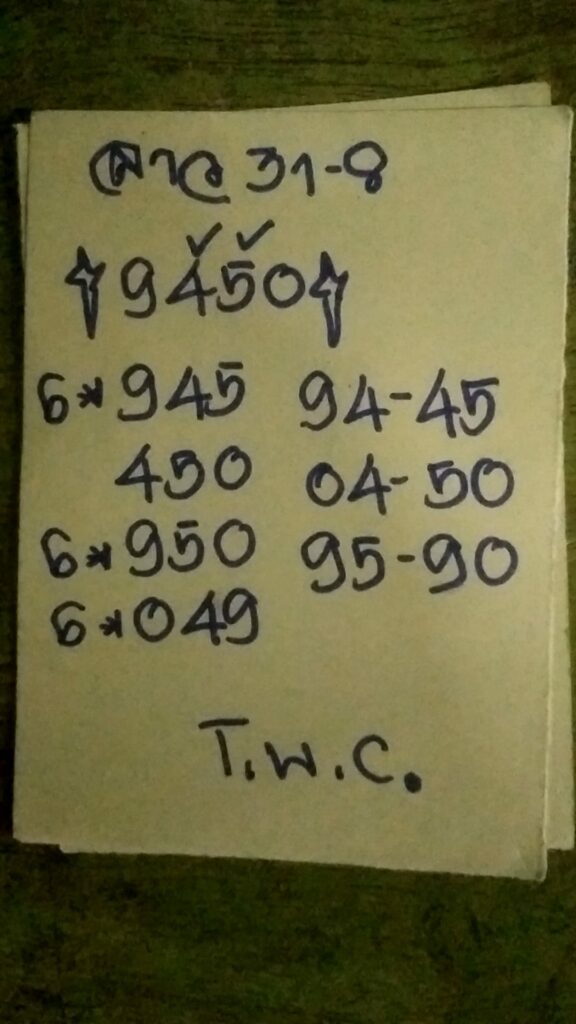 ลาว 31-8
9450
6*945 94-45
450 04-50
6*950 95-90
6*049
T.W.C.